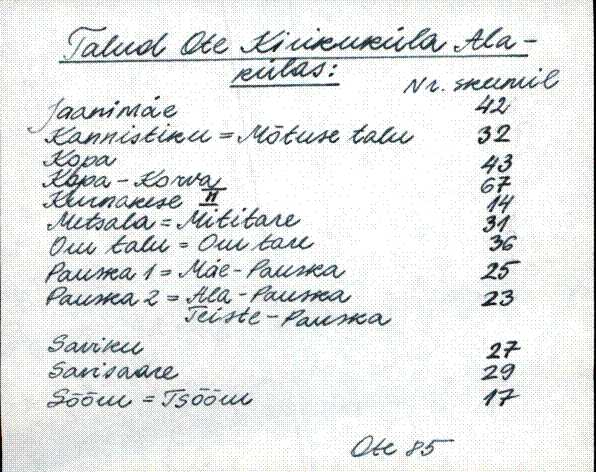 Talud Ote Kirikuküla Ala-
külas:
Nr. skemil
Jaanimäe 42
Kannistiku = Mõtuse talu 32
Kopa 43
Kopa - Korva 67
Kurnakese II 14
Metsala = Mititare 31
Oru talu = Oru tare 36
Pauska 1 = Mäe-Pauska 25
Pauska 2 = Ala-Pauska 23
Teiste-Pauska
Saviku 27
Savisaare 29
Sõõru = Tsõõru 17
Ote 85